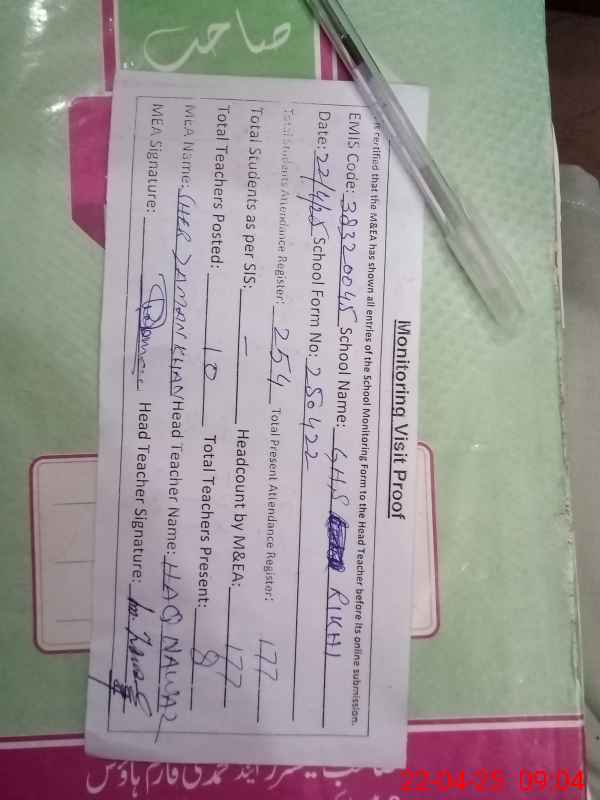 صاحب
Monitoring Visit Proof
certified that the M&EA has shown all entries of the School Monitoring Form to the Head Teacher before its online submission.
EMIS Code: 38320045 School Name: GHS RIKHI
Date: 22/4/25 School Form No: 250422
Total Students Attendance Register: 254 Total Present Attendance Register: 177
Total Students as per SIS: - Headcount by M&EA: 177
Total Teachers Posted: 10 Total Teachers Present: 8
MEA Name: SHER ZAMAN KHAN Head Teacher Name: HAQ NAWAZ
MEA Signature: Head Teacher Signature:
اینڈ محمدی فارم ہاؤس
22-04-25 09:04